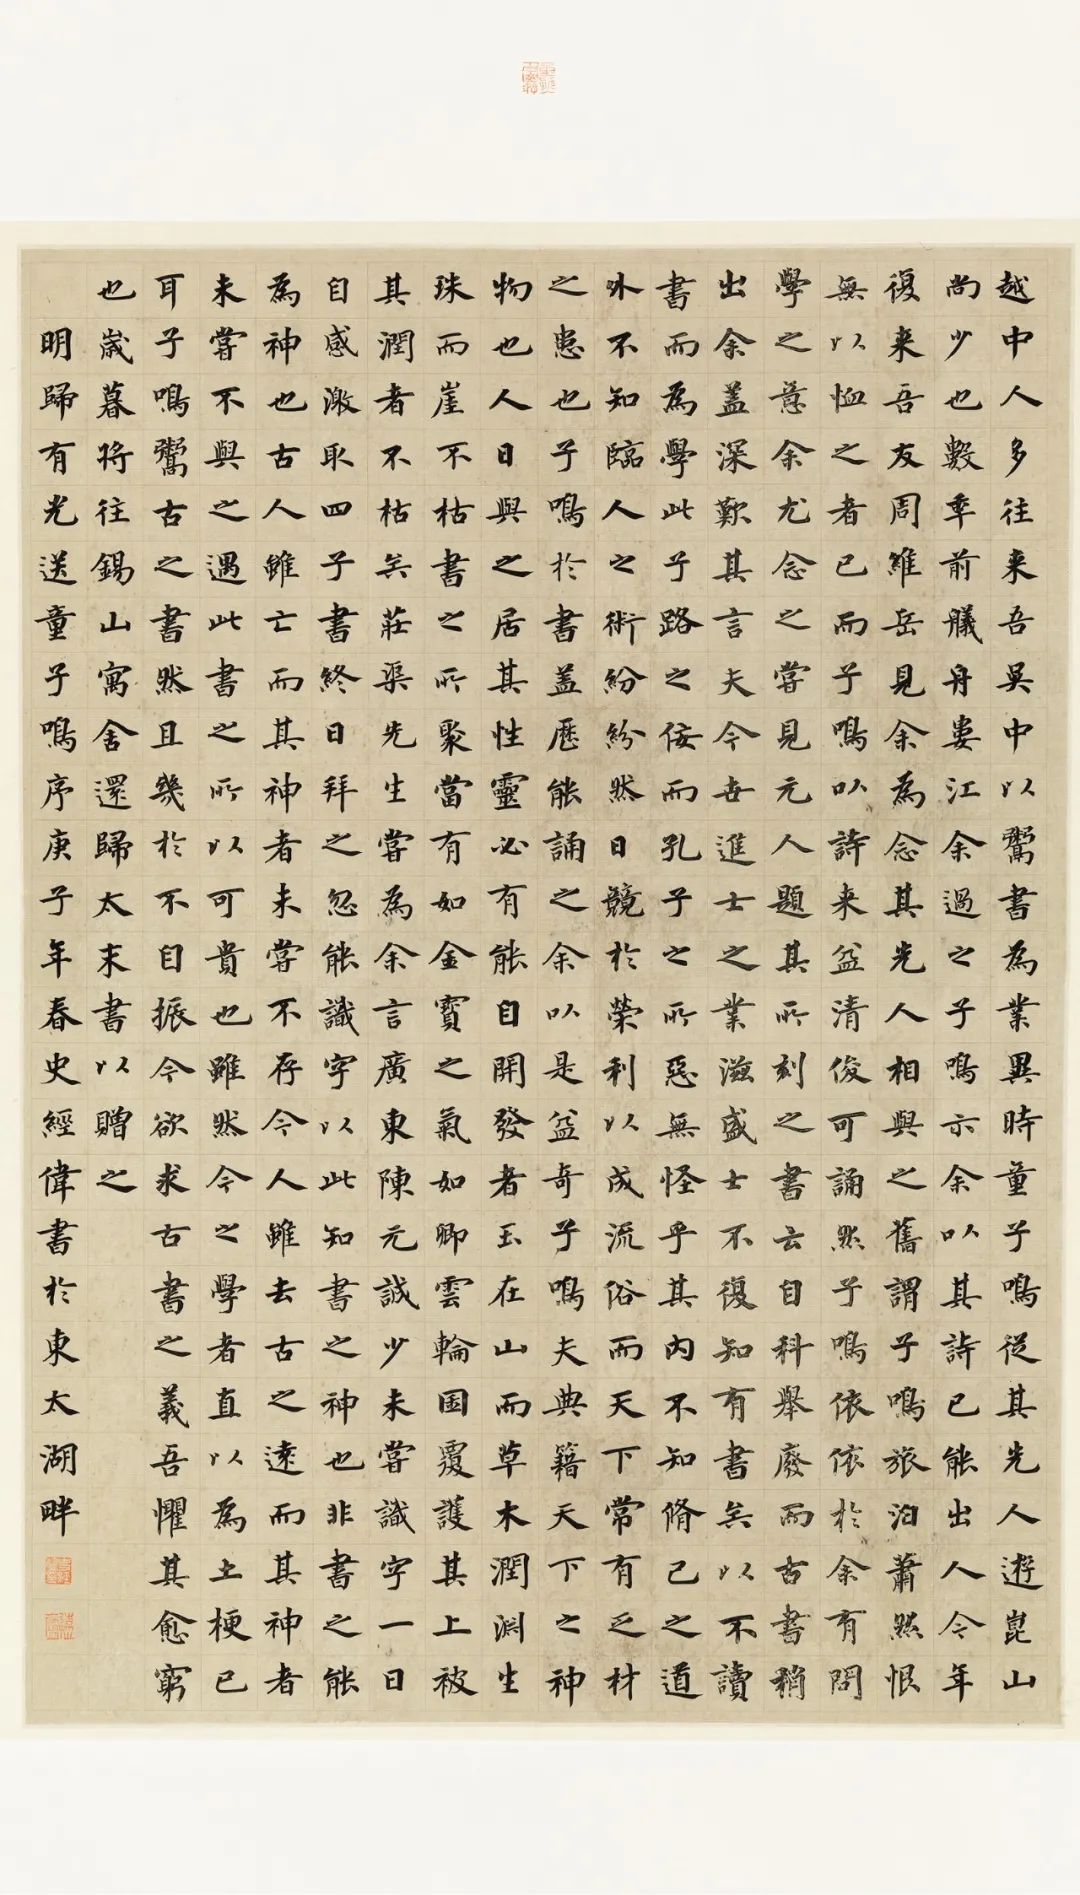 越中人多往来吾吳中以鬻書為業異時童子鳴從其先人遊崑山
尚少也數年前艤舟婁江余過之子鳴示余以其詩已能出人今年
復来吾友周維岳見余為念其先人相與之舊謂子鳴旅泊蕭然恨
無以恤之者已而子鳴以詩来益清俊可誦然子鳴依依於余有問
學之意余尤念之嘗見元人題其所刻之書云自科舉廢而古書稍
出余蓋深歎其言夫今世進士之業滋盛士不復知有書矣以不讀
書而為學此子路之佞而孔子之所惡無怪乎其内不知脩己之道
外不知臨人之術紛紛然日競於榮利以成流俗而天下常有乏材
之患也子鳴於書蓋歷能誦之余以是益奇子鳴夫典籍天下之神
物也人日與之居其性靈必有能自開發者玉在山而草木潤淵生
珠而崖不枯書之所聚當有如金寶之氣如卿雲輪囷覆護其上被
其潤者不枯矣莊渠先生嘗為余言廣東陳元誠少未嘗識字一日
自感激取四子書終日拜之忽能識字以此知書之神也非書之能
為神也古人雖亡而其神者未嘗不存今人雖去古之遠而其神者
未嘗不與之遇此書之所以可貴也雖然今之學者直以為土梗已
耳子鳴鬻古之書然且幾於不自振今欲求古書之義吾懼其愈窮
也歲暮將往錫山寓舍還歸太末書以贈之
明歸有光送童子鳴序庚子年春史經偉書於東太湖畔